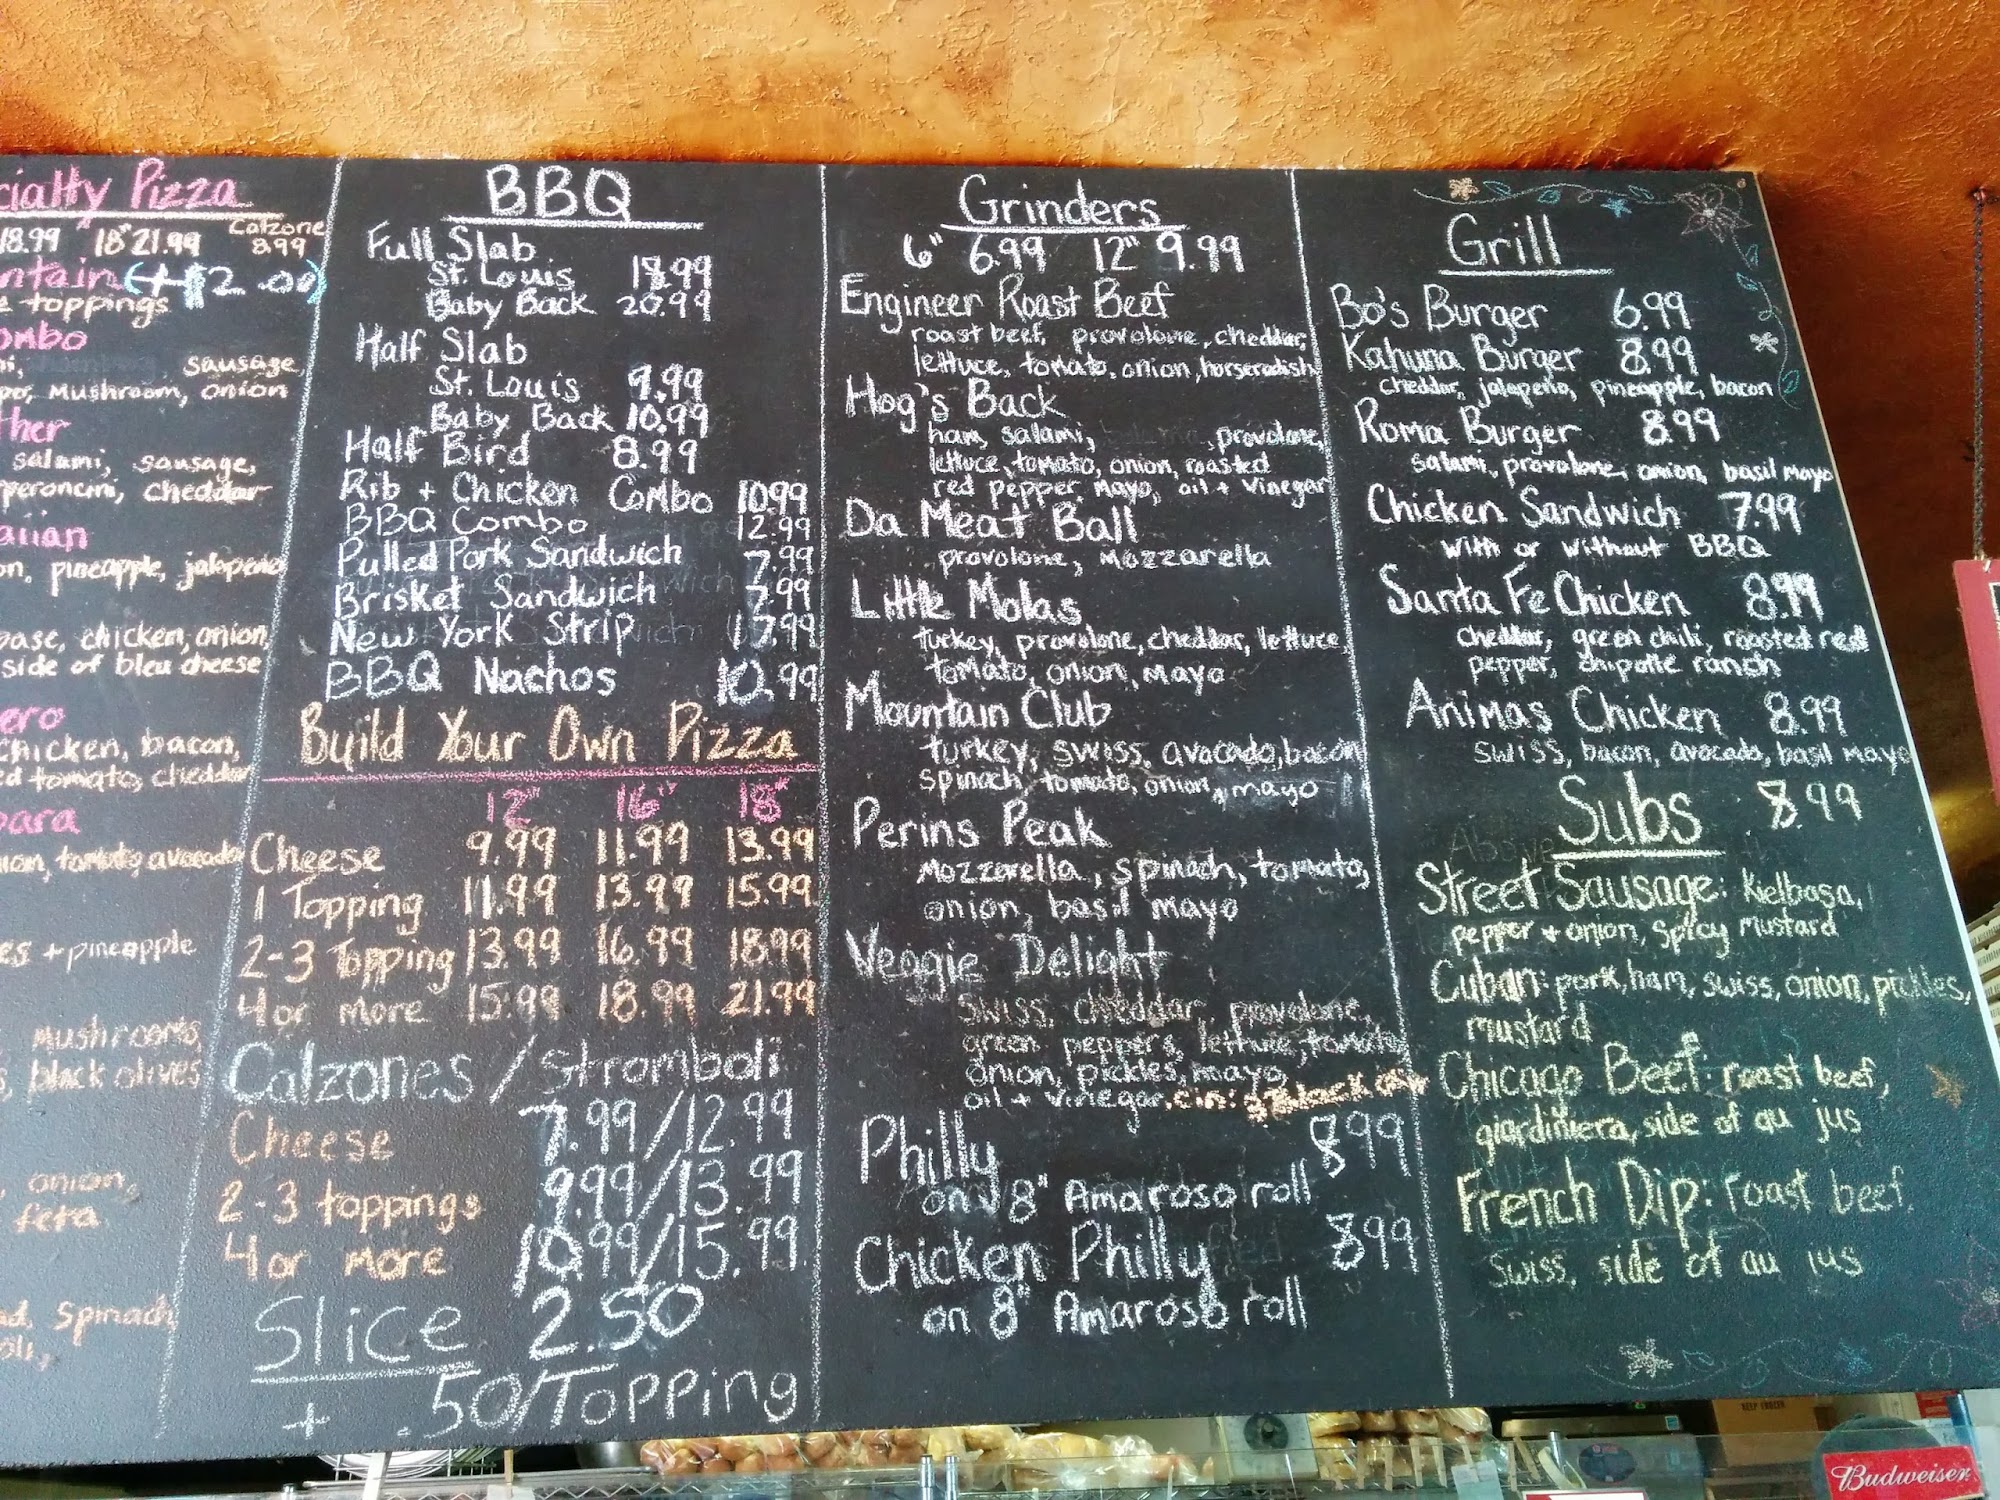 Pizza
18.99 18" 21.99 Calzone 8.99
(+$2.00)
toppings
sausage
Mushroom, onion
salami, sausage,
cheddar
pineapple, jalapeño
base, chicken, onion,
side of bleu cheese
chicken, bacon,
tomato, cheddar
tomato, avocado
+ pineapple
mushrooms,
black olives
onion,
feta
spinach
BBQ
Full Slab
St. Louis 18.99
Baby Back 20.99
Half Slab
St. Louis 9.99
Baby Back 10.99
Half Bird 8.99
Rib + Chicken Combo 10.99
BBQ Combo 12.99
Pulled Pork Sandwich 7.99
Brisket Sandwich 7.99
New York Strip 17.99
BBQ Nachos 10.99
Build Your Own Pizza
12" 16" 18"
Cheese 9.99 11.99 13.99
1 Topping 11.99 13.99 15.99
2-3 Topping 13.99 16.99 18.99
4 or more 15.99 18.99 21.99
Calzones / Stromboli
Cheese 7.99/12.99
2-3 toppings 9.99/13.99
4 or more 10.99/15.99
Slice 2.50
+ .50/Topping
Grinders
6" 6.99 12" 9.99
Engineer Roast Beef
roast beef, provolone, cheddar,
lettuce, tomato, onion, horseradish
Hog's Back
ham, salami, provolone,
lettuce, tomato, onion, roasted
red pepper, mayo, oil + vinegar
Da Meat Ball
provolone, mozzarella
Little Molas
turkey, provolone, cheddar, lettuce,
tomato, onion, mayo
Mountain Club
turkey, swiss, avocado, bacon
spinach, tomato, onion, mayo
Perins Peak
mozzarella, spinach, tomato,
onion, basil mayo
Veggie Delight
swiss, cheddar, provolone,
green peppers, lettuce, tomato,
onion, pickles, mayo,
oil + vinegar,
Philly 8.99
on 8" Amaroso roll
Chicken Philly 8.99
on 8" Amaroso roll
Grill
Bo's Burger 6.99
Kahuna Burger 8.99
cheddar, jalapeño, pineapple, bacon
Roma Burger 8.99
salami, provolone, onion, basil mayo
Chicken Sandwich 7.99
with or without BBQ
Santa Fe Chicken 8.99
cheddar, green chili, roasted red
pepper, chipotle ranch
Animas Chicken 8.99
swiss, bacon, avocado, basil mayo
Subs 8.99
Street Sausage: Kielbasa,
pepper + onion, spicy mustard
Cuban: pork, ham, swiss, onion, pickles,
mustard
Chicago Beef: roast beef,
giardiniera, side of au jus
French Dip: roast beef,
swiss, side of au jus
Budweiser